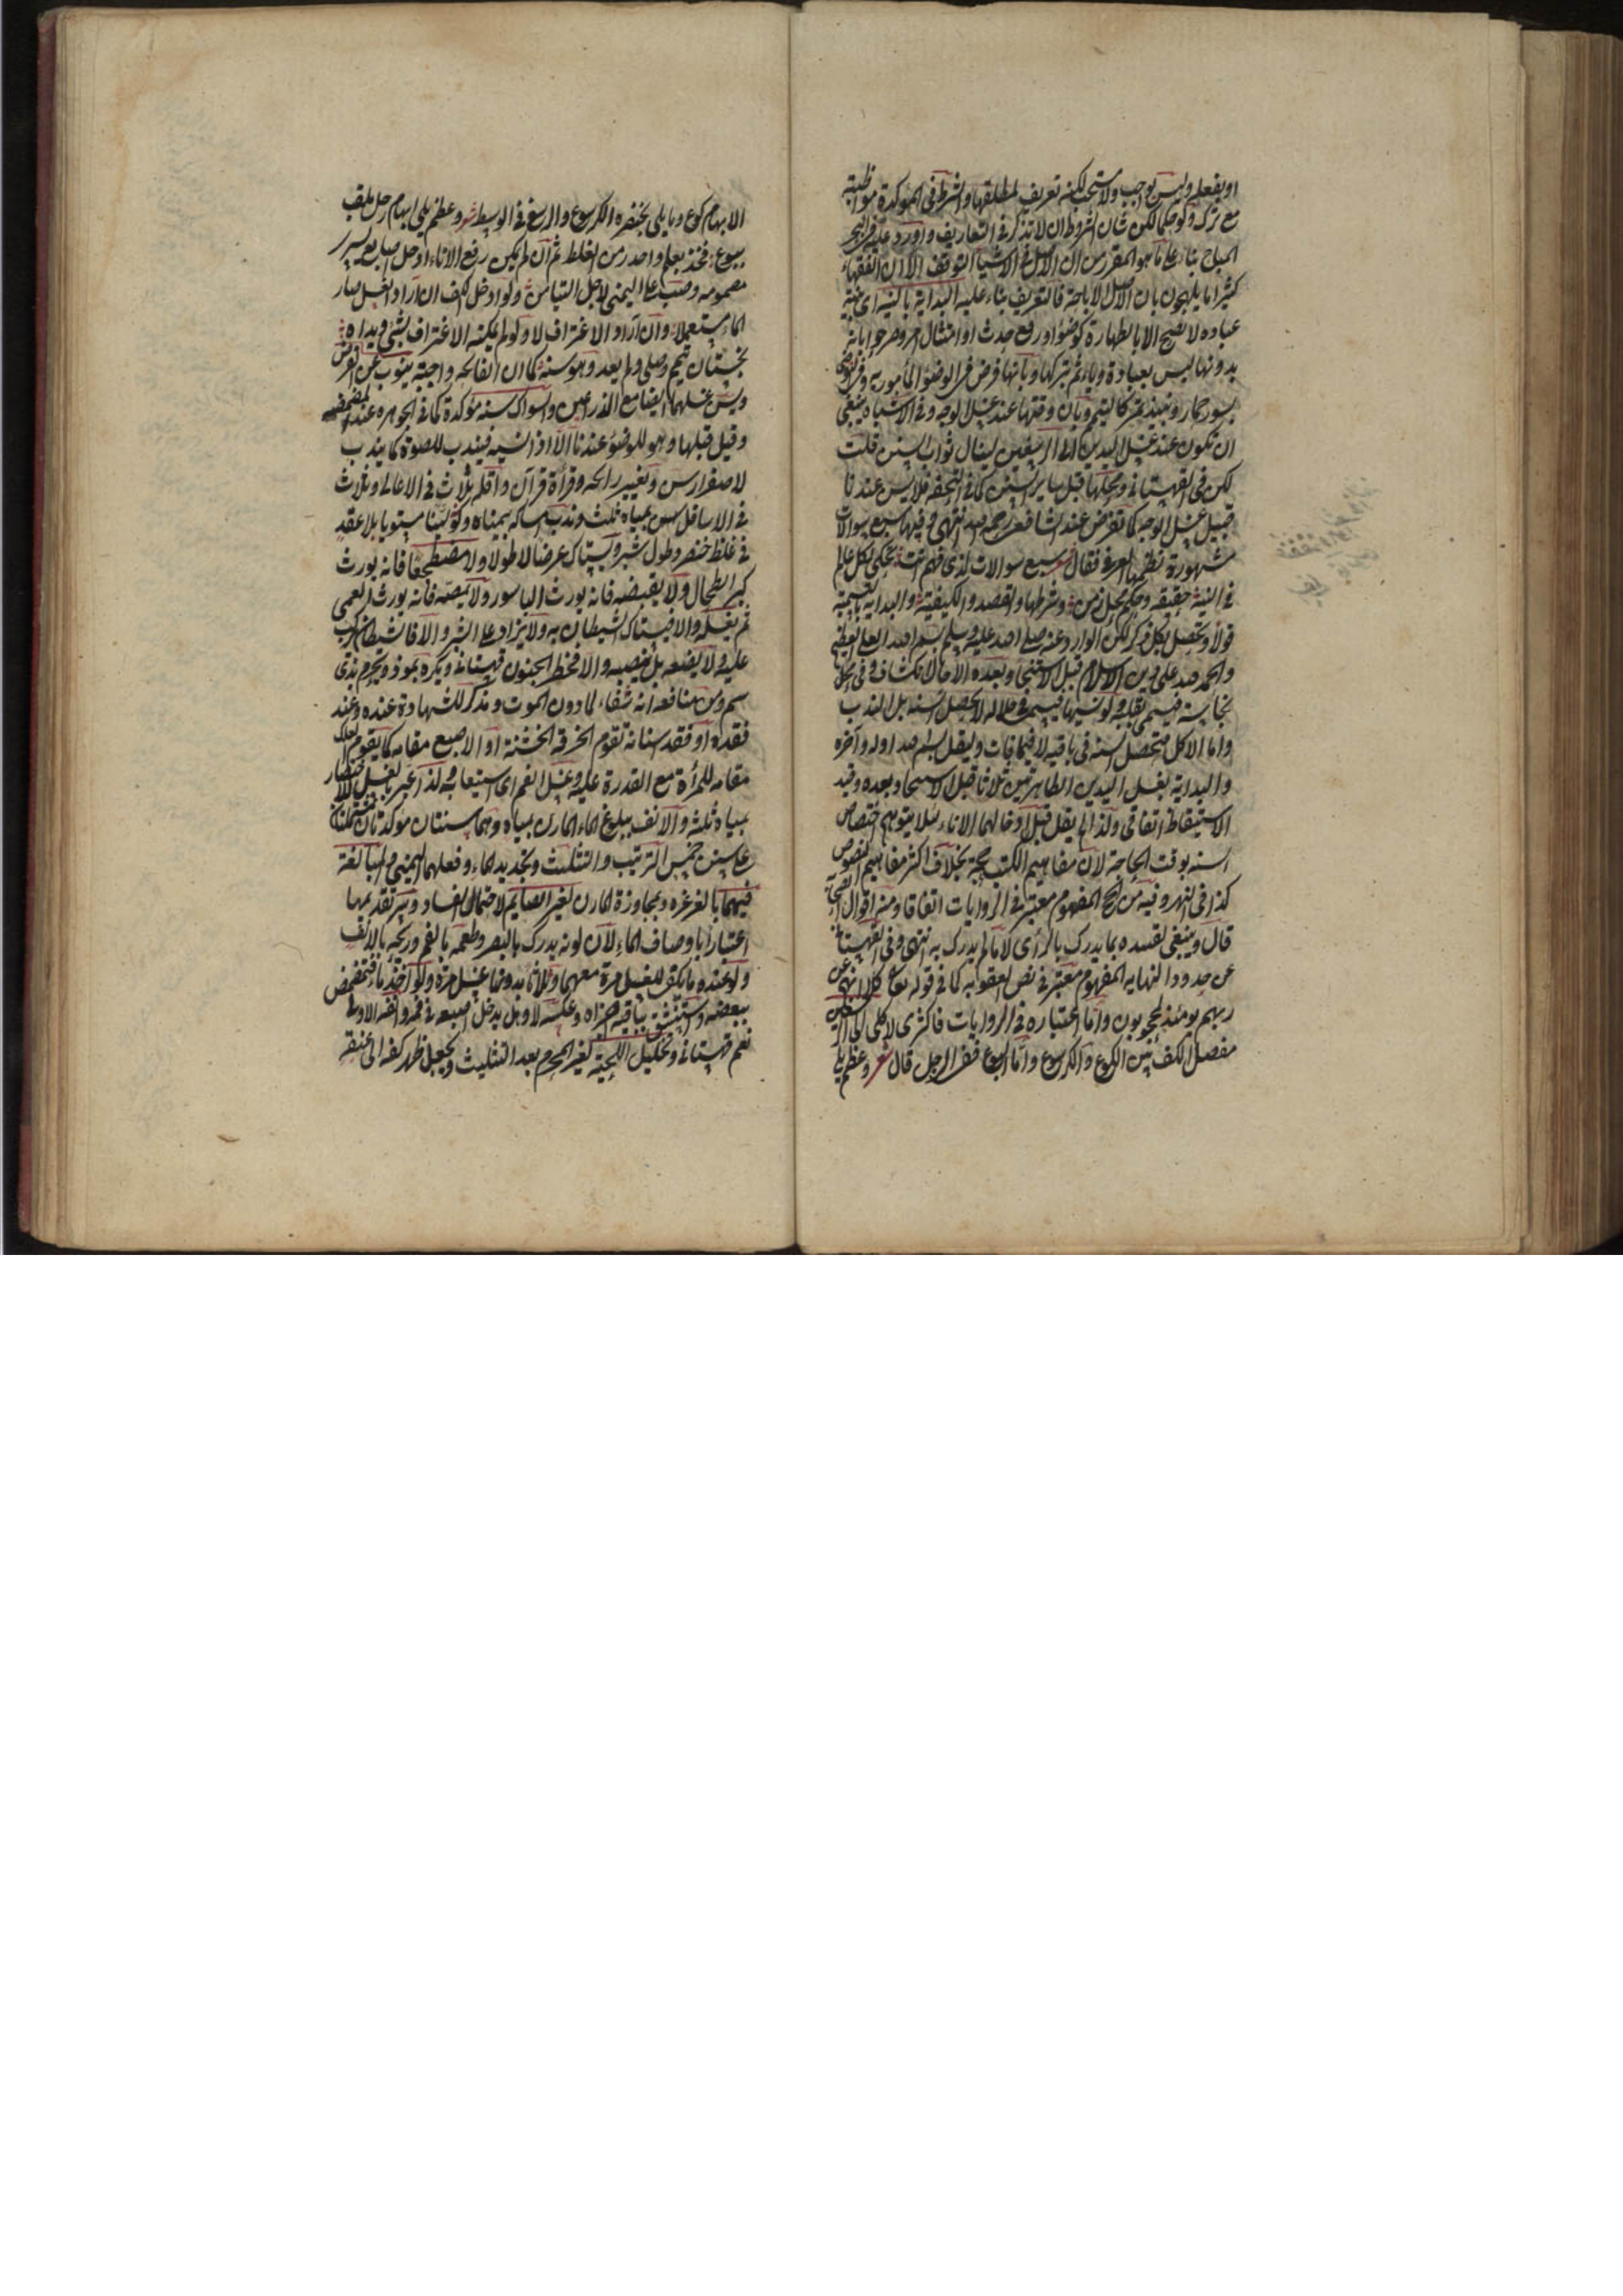 او بفعله وليس بواجب ولا مستحب لكنه تعريف لمطلقها والشرط في المؤكدة مواظبة
مع ترك ولو حكما لكن شان الشروط ان لا تذكر في التعاريف واورد عليه في البحر
المباح بناء على ما هو المقرر من ان الاصل في الاشيا التوقف الا ان الفقهاء
كثيرا ما يلهجون بان الاصل الاباحة فالتعريف بناء عليه البداية بالنية اى نية
عبادة لا تصح الا بالطهارة كوضؤ او رفع حدث او امتثال امر وصرحوا بانه
بدونها ليس بعبادة وياثم بتركها وبانها فرض في الوضؤ المأمور به وفي التوضى
بسور حمار ونبيذ تمر كالتيمم وبان وقتها عند غسل الوجه وفي الاشباه ينبغى
ان تكون عند غسل اليدين الى الرسغين لينال ثواب السنن قلت
لكن في القهستانى ومحلها قبل ساير السنن كما في التحفه فلا يسن عندنا
قبيل غسل الوجه كما تفرض عند الشافعى رحمه الله انتهى وفيها سبع سوالات
مشهورة نظمها العراقى فقال شعر سبع سوالات لذى فهم اتت تحكى لكل عالم
في النية حقيقه وحكم محل زمن وشرطها والقصد والكيفية والبداية بالتسمية
قولا وتحصل بكل ذكر لكن الوارد عنه صلى الله عليه وسلم بسم الله العلى العظيم
والحمد لله على دين الاسلام قبل الاستنجا وبعده الا حال انكشاف وفي محل
نجاسة فيسمى بقلبه ولو نسيها فسمى في خلاله لا تحصل السنة بل المندوب
واما الاكل فتحصل السنه في باقيه لا فيما فات وليقل بسم الله اوله وآخره
والبداية بغسل اليدين الطاهرتين ثلاثا قبل الاستنجا وبعده وقيد
الاستيقاظ اتفاقى ولذا لم يقل قبل ادخالهما الاناء لئلا يتوهم اختصاص
السنه بوقت الحاجة لان مفاهيم الكتب حجة بخلاف اكثر مفاهيم النصوص
كذا في النهر وفيه من الحج المفهوم معتبر في الروايات اتفاقا ومنه اقوال الصحابة
قال وينبغى تقييده بما يدرك بالرأى لا ما لم يدرك به انتهى وفي القهستانى
عن حدود النهايه المفهوم معتبر في نص العقوبه كما في قوله تعالى كلا انهم عن
ربهم يومئذ لمحجوبون واما اعتباره في الروايات فاكثرى لا كلى الى الرسغين
مفصل الكف بين الكوع والكرسوع واما البوع ففي الرجل قال شعر وعظم يلى
الابهام كوع وما يلى بخنصره الكرسوع والرسغ في الوسط شعر وعظم يلى ابهام رجل ملقب
ببوع فخذ بعلم واحذر من الغلط ثم ان لم يكن رفع الاناء ادخل اصابع يسر
مضمومه وصب على اليمنى لاجل التيامن ولو ادخل الكف ان اراد الغسل صار
الماء مستعملا وان اراد الاغتراف لا ولو لم يمكنه الاغتراف بشئ ويداه
نجستان تيمم وصلى ولم يعد وهو سنة كما ان الفاتحه واجبة ينوب عن الفرض
ويسن غسلهما ايضا مع الذراعين والسواك سنه مؤكدة كما في الجوهره عند المضمضه
وقيل قبلها وهو للوضؤ عندنا الا اذا نسيه فيندب للصلوة كما يندب
لاصفرار سن وتغيير رائحه وقرأة قرآن واقله ثلاث في الاعالى وثلاث
في الاسافل بمياه ثلثه وندب امساكه بيمناه وكونه لينا مستويا بلا عقد
في غلظ خنصر وطول شبر ويستاك عرضا لا طولا ولا مضطجعا فانه يورث
كبر الطحال ولا يقبضه فانه يورث الباسور ولا يمصه فانه يورث العمى
ثم يغسله والا فيستاك الشيطان به ولا يزاد على الشبر والا فالشيطان يركب
عليه ولا يضعه بل ينصبه والا فخطر الجنون قهستانى ويكره بموذ ويحرم بذى
سم ومن منافعه انه شفاء لما دون الموت ومذكر للشهادة عنده وعند
فقده او فقد اسنانه تقوم الخرقة الخشنة او الاصبع مقامه كما يقوم العلك
مقامه للمرأة مع القدرة عليه وغسل الفم اى استيعابه ولذا عبر بالغسل او للاختصار
بمياه ثلثه والانف ببلوغ الماء المارن بمياه وهما سنتان موكدتان مشتملتان
على سنن خمس الترتيب والتثليث وتجديد الماء وفعلهما باليمنى والمبالغة
فيهما بالغرغره ومجاوزة المارن لغير الصايم لاحتمال الفساد وسر تقديمهما
اعتبار اوصاف الماء لان لونه يدرك بالبصر وطعمه بالفم وريحه بالانف
ولو عنده ما يكفى للغسل مرة معهما وثلاثا بدونهما غسل مرة ولو اخذ ماء فتمضمض
ببعضه واستنشق بباقيه اجزاه وعكسه لا وهل يدخل اصبعه في فمه وانفه الاولى
نعم قهستانى وتخليل اللحية لغير المحرم بعد التثليث ويجعل ظهر كفه الى عنقه